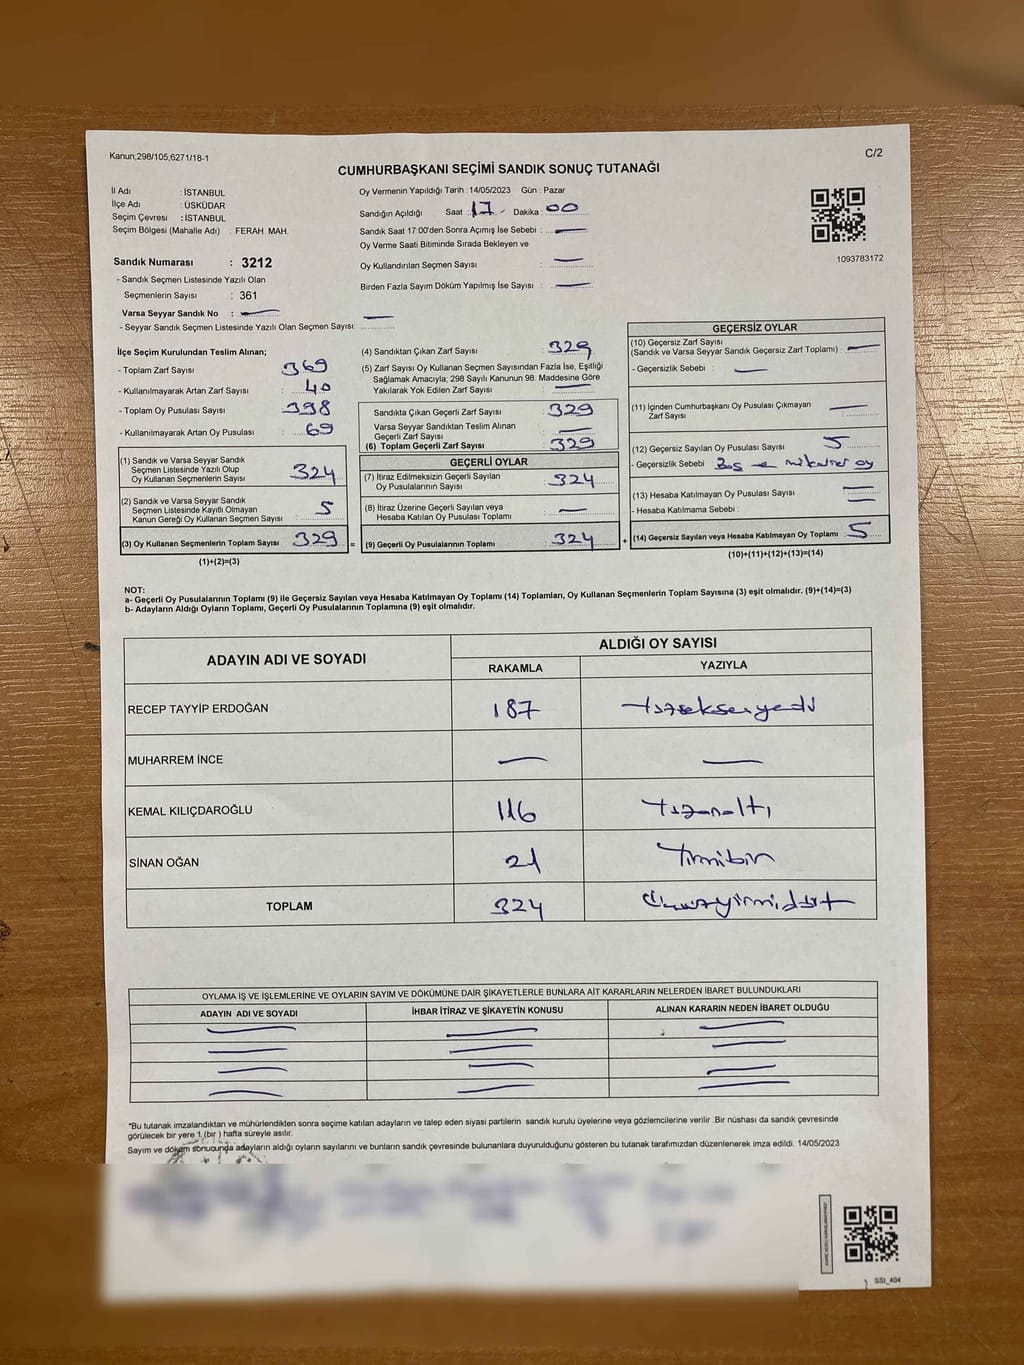 Kanun;298/105;6271/18-1
C/2
CUMHURBAŞKANI SEÇİMİ SANDIK SONUÇ TUTANAĞI
İl Adı : İSTANBUL
İlçe Adı : ÜSKÜDAR
Seçim Çevresi : İSTANBUL
Seçim Bölgesi (Mahalle Adı) : FERAH MAH.
Sandık Numarası : 3212
- Sandık Seçmen Listesinde Yazılı Olan
Seçmenlerin Sayısı : 361
Varsa Seyyar Sandık No : —
- Seyyar Sandık Seçmen Listesinde Yazılı Olan Seçmen Sayısı: —
Oy Vermenin Yapıldığı Tarih : 14/05/2023 Gün : Pazar
Sandığın Açıldığı Saat : 17 Dakika : 00
Sandık Saat 17:00'den Sonra Açımış İse Sebebi : —
Oy Verme Saati Bitiminde Sırada Bekleyen ve
Oy Kullandırılan Seçmen Sayısı : —
Birden Fazla Sayım Döküm Yapılmış İse Sayısı : —
1093783172
İlçe Seçim Kurulundan Teslim Alınan;
- Toplam Zarf Sayısı : 369
- Kullanılmayarak Artan Zarf Sayısı : 40
- Toplam Oy Pusulası Sayısı : 398
- Kullanılmayarak Artan Oy Pusulası : 69
(1) Sandık ve Varsa Seyyar Sandık
Seçmen Listesinde Yazılı Olup
Oy Kullanan Seçmenlerin Sayısı : 324
(2) Sandık ve Varsa Seyyar Sandık
Seçmen Listesinde Kayıtlı Olmayan
Kanun Gereği Oy Kullanan Seçmen Sayısı : 5
(3) Oy Kullanan Seçmenlerin Toplam Sayısı : 329
(1)+(2)=(3)
(4) Sandıktan Çıkan Zarf Sayısı : 329
(5) Zarf Sayısı Oy Kullanan Seçmen Sayısından Fazla İse, Eşitliği
Sağlamak Amacıyla; 298 Sayılı Kanunun 98. Maddesine Göre
Yakılarak Yok Edilen Zarf Sayısı : —
Sandıkta Çıkan Geçerli Zarf Sayısı : 329
Varsa Seyyar Sandıktan Teslim Alınan
Geçerli Zarf Sayısı : —
(6) Toplam Geçerli Zarf Sayısı : 329
GEÇERLİ OYLAR
(7) İtiraz Edilmeksizin Geçerli Sayılan
Oy Pusulalarının Sayısı : 324
(8) İtiraz Üzerine Geçerli Sayılan veya
Hesaba Katılan Oy Pusulası Toplamı : —
= (9) Geçerli Oy Pusulalarının Toplamı : 324 +
GEÇERSİZ OYLAR
(10) Geçersiz Zarf Sayısı
(Sandık ve Varsa Seyyar Sandık Geçersiz Zarf Toplamı) : —
- Geçersizlik Sebebi : —
(11) İçinden Cumhurbaşkanı Oy Pusulası Çıkmayan
Zarf Sayısı : —
(12) Geçersiz Sayılan Oy Pusulası Sayısı : 5
- Geçersizlik Sebebi : Boş ve mükerrer oy
(13) Hesaba Katılmayan Oy Pusulası Sayısı : —
- Hesaba Katılmama Sebebi : —
(14) Geçersiz Sayılan veya Hesaba Katılmayan Oy Toplamı : 5
(10)+(11)+(12)+(13)=(14)
NOT:
a- Geçerli Oy Pusulalarının Toplamı (9) ile Geçersiz Sayılan veya Hesaba Katılmayan Oy Toplamı (14) Toplamları, Oy Kullanan Seçmenlerin Toplam Sayısına (3) eşit olmalıdır. (9)+(14)=(3)
b- Adayların Aldığı Oyların Toplamı, Geçerli Oy Pusulalarının Toplamına (9) eşit olmalıdır.
ADAYIN ADI VE SOYADI ALDIĞI OY SAYISI
RAKAMLA YAZIYLA
RECEP TAYYİP ERDOĞAN 187 Yüzseksenyedi
MUHARREM İNCE — —
KEMAL KILIÇDAROĞLU 116 Yüzonaltı
SİNAN OĞAN 21 Yirmibir
TOPLAM 324 Üçyüzyirmidört
OYLAMA İŞ VE İŞLEMLERİNE VE OYLARIN SAYIM VE DÖKÜMÜNE DAİR ŞİKAYETLERLE BUNLARA AİT KARARLARIN NELERDEN İBARET BULUNDUKLARI
ADAYIN ADI VE SOYADI İHBAR İTİRAZ VE ŞİKAYETİN KONUSU ALINAN KARARIN NEDEN İBARET OLDUĞU
*Bu tutanak imzalandıktan ve mühürlendikten sonra seçime katılan adayların ve talep eden siyasi partilerin sandık kurulu üyelerine veya gözlemcilerine verilir .Bir nüshası da sandık çevresinde
görülecek bir yere 1 (bir ) hafta süreyle asılır.
Sayım ve döküm sonucunda adayların aldığı oyların sayılarını ve bunların sandık çevresinde bulunanlara duyurulduğunu gösteren bu tutanak tarafımızdan düzenlenerek imza edildi. 14/05/2023
SSI_404